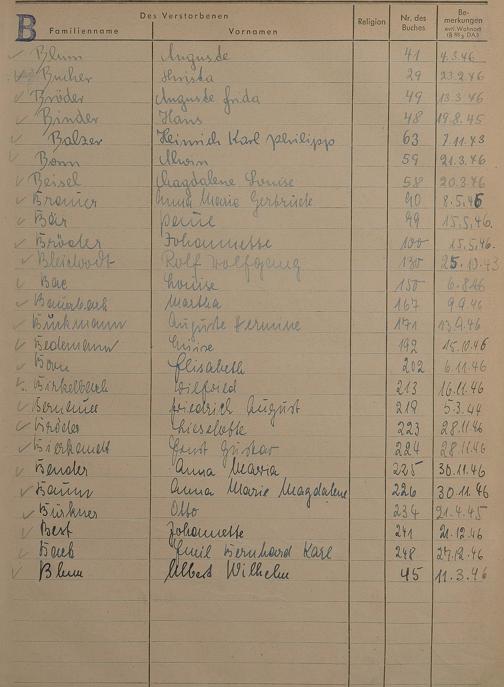 B
Des Verstorbenen
Familienname Vornamen Religion Nr. des Buches Bemerkungen evtl. Wohnort
✓ Blum Auguste 41 4.3.46
Bucher Christa 29 23.2.46
✓ Bröder Auguste Frida 49 13.3.46
✓ Binder Hans 48 19.8.45
✓ Balzer Heinrich Karl Philipp 63 7.11.43
Bonn Alwin 59 21.3.46
✓ Beisel Magdalene Louise 58 20.3.46
✓ Brauer Anna Maria 90 8.5.46
✓ Bär 99 15.5.46.
✓ Bröder Johannette 100 15.5.46.
✓ Rolf Wolfgang 130 25.10.43
✓ Louise 150 6.8.46
✓ Bauerbach Martha 167 9.9.46
✓ Bückmann Auguste Hermine 171 13.9.46
✓ Bedemann Luise 192 15.10.46
✓ Elisabeth 202 6.11.46
Birkelbach Wilfried 213 16.11.46
✓ Friedrich August 219 5.3.44
✓ Bröder Lieselotte 223 28.11.46
✓ Ernst Gustav 224 28.11.46
✓ Bender Anna Maria 225 30.11.46
✓ Baum Anna Marie Magdalene 226 30.11.46
✓ Bürkner Otto 234 21.4.45
✓ Best Johannette 241 21.12.46
✓ Emil Bernhard Karl 248 27.12.46
✓ Blum Albert Wilhelm 45 11.3.46